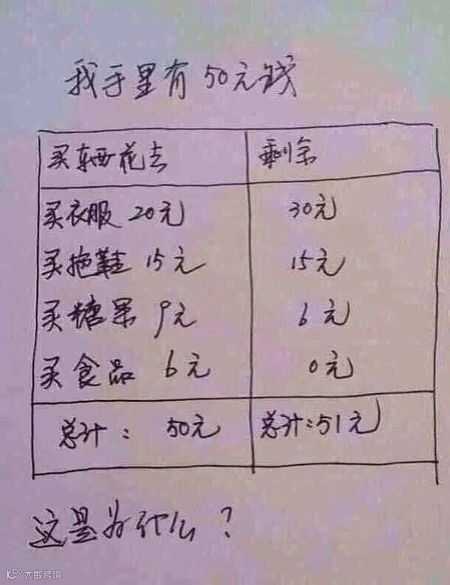 我手里有50元钱
买东西花去 剩余
买衣服 20元 30元
买拖鞋 15元 15元
买糖果 9元 6元
买食品 6元 0元
总计： 50元 总计：51元
这是为什么？
大数跨境